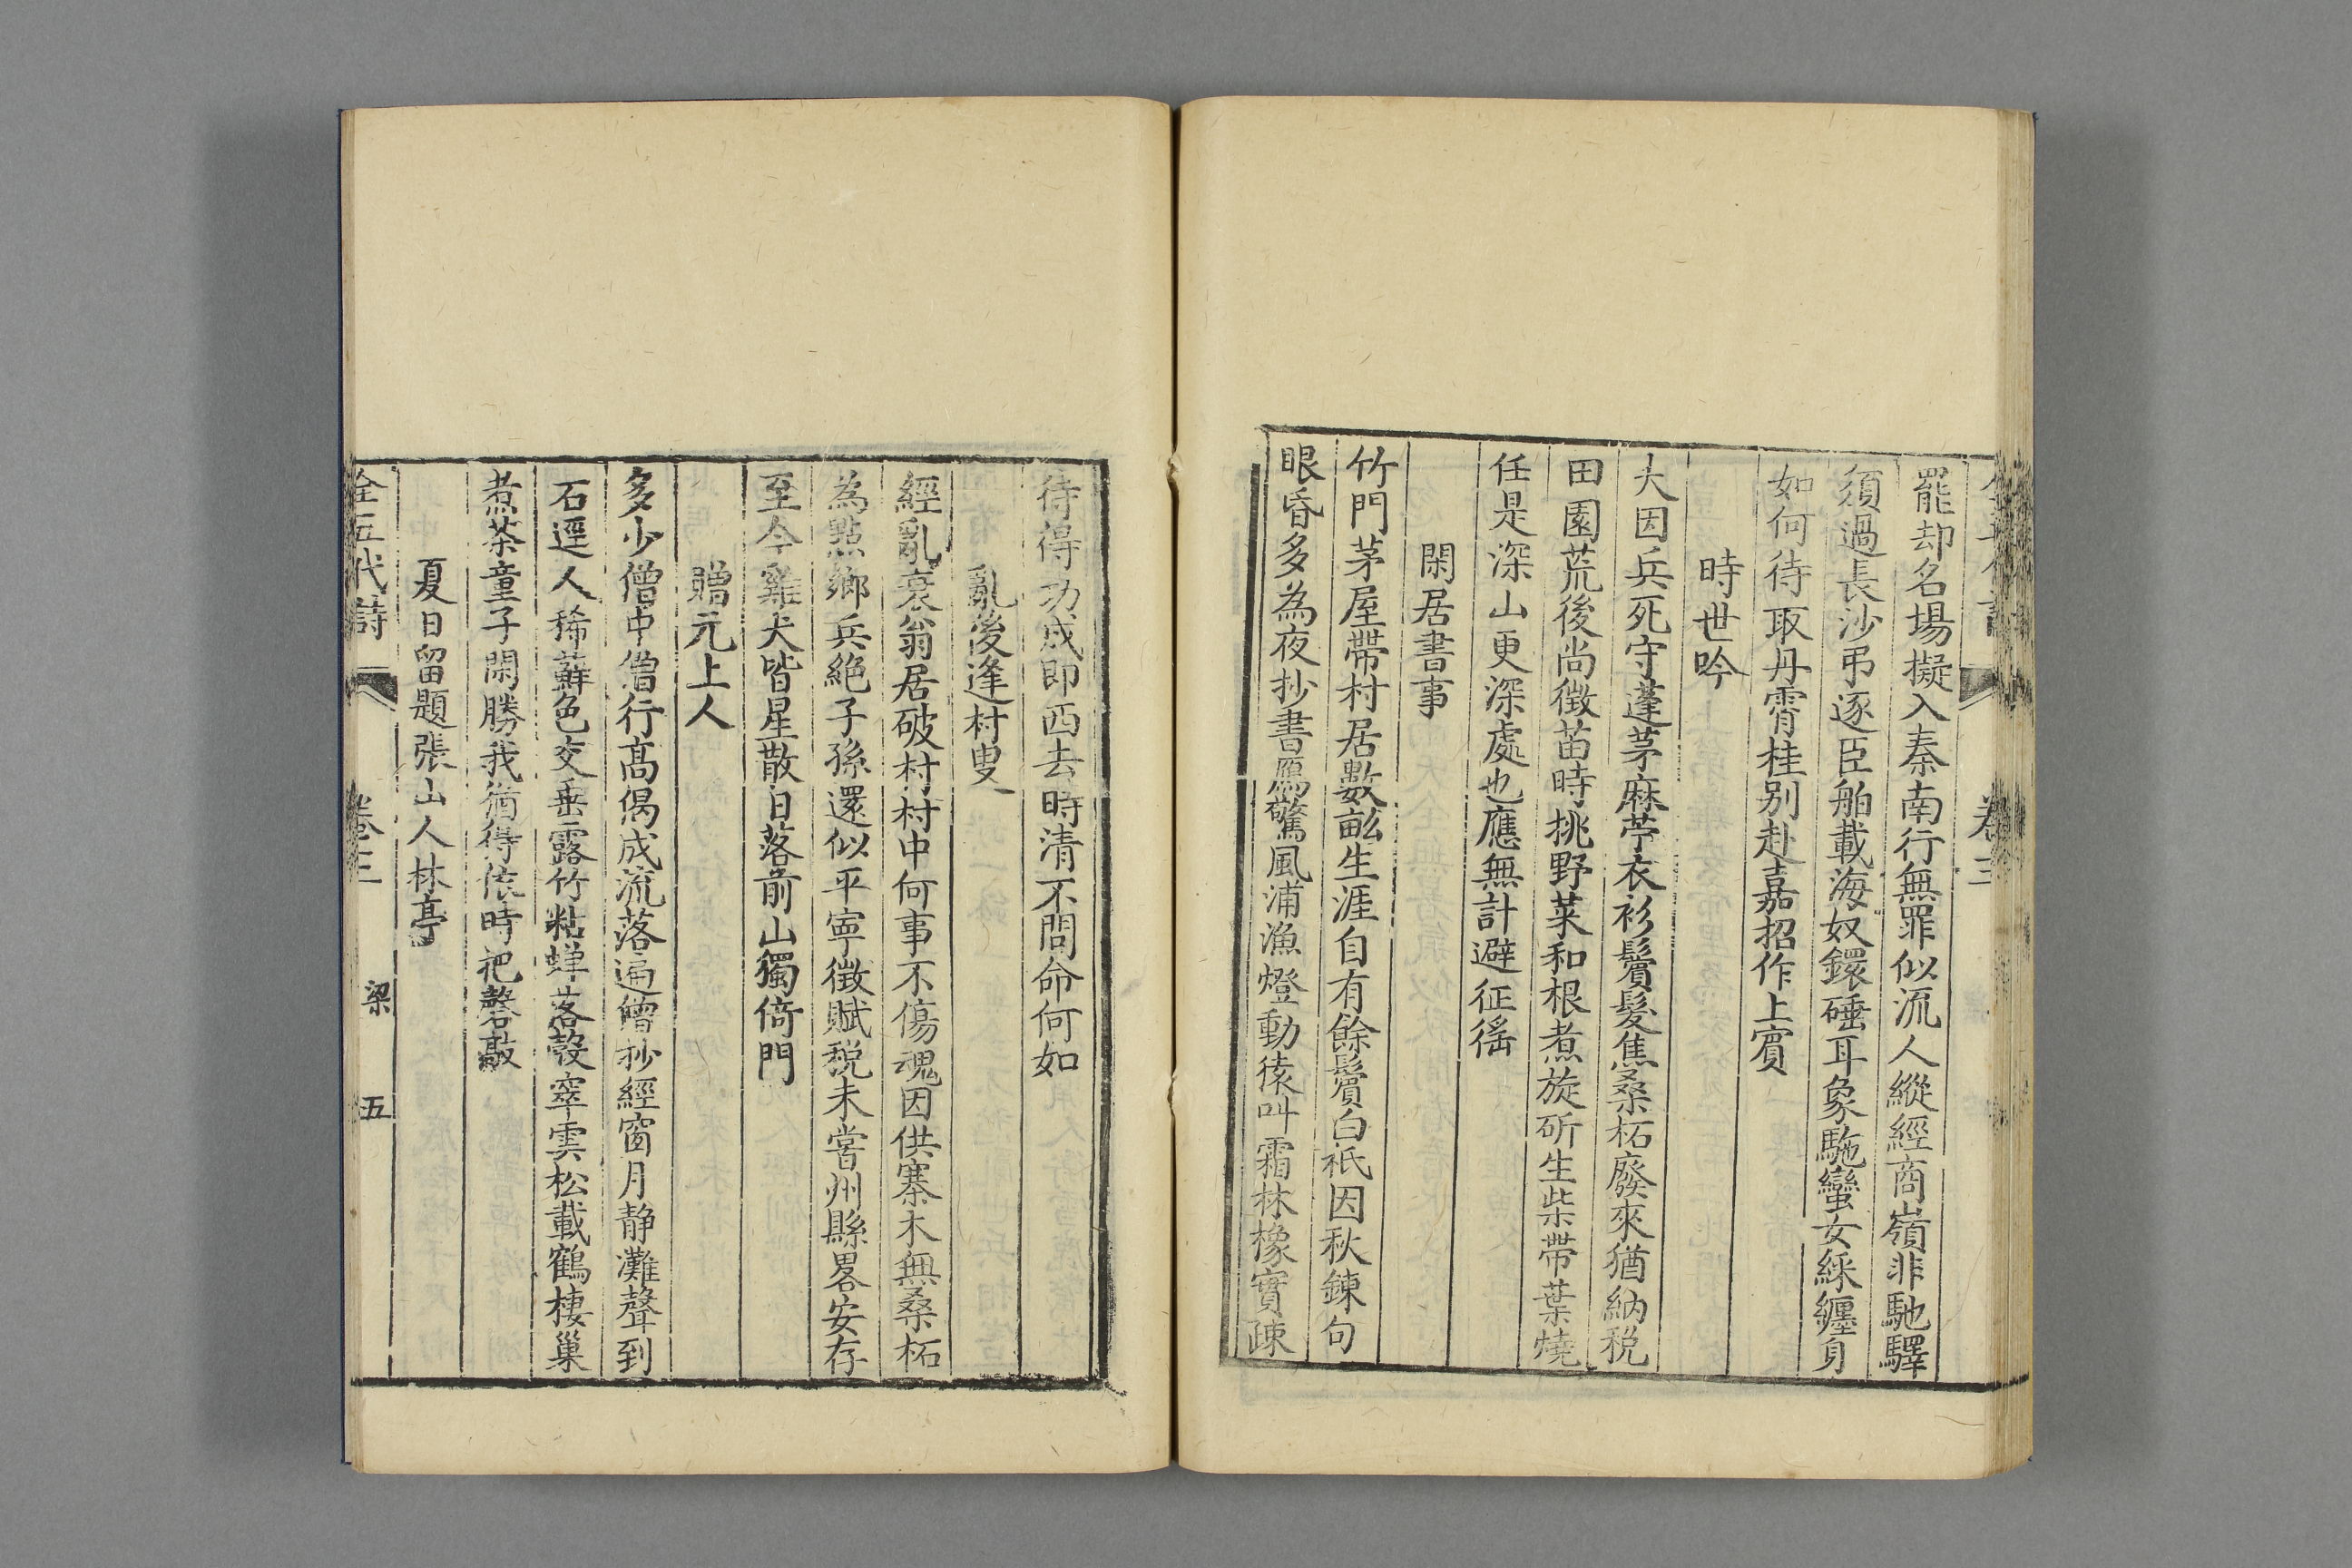 罷却名場擬入秦南行無罪似流人縱經商嶺非馳驛
須過長沙弔逐臣舶載海奴鐶硾耳象駞蠻女綵纏身
如何待取丹霄桂别赴嘉招作上賓
時世吟
大因兵死守蓬茅麻苧衣衫鬢髮焦桑柘廢來猶納税
田園荒後尚徵苗時挑野菜和根煮旋斫生柴帶葉燒
任是深山更深處也應無計避征徭
閑居書事
竹門茅屋帶村居數畝生涯自有餘鬢白衹因秋鍊句
眼昏多為夜抄書鴈驚風浦漁燈動猿叫霜林橡實疎
待得功成即西去時清不問命何如
亂後逢村叟
經亂衰翁居破村村中何事不傷魂因供寨木無桑柘
為點鄉兵絶子孫還似平寧徵賦税未嘗州縣畧安存
至今雞犬皆星散日落前山獨倚門
贈元上人
多少僧中僧行高偶成流落遍僧抄經窗月静灘聲到
石逕人稀蘚色交垂露竹粘蟬落殼窣雲松載鶴棲巢
煮茶童子閑勝我猶得依時把磬敲
夏日留題張山人林亭
全五代詩 卷三 梁 五